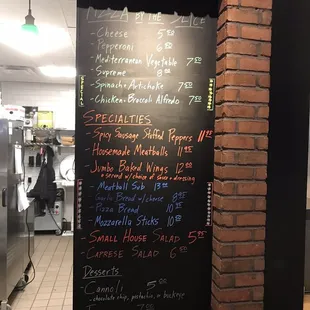 PIZZA BY THE SLICE
- Cheese 5.00
- Pepperoni 6.00
- Mediterranean Vegetable 7.50
- Supreme 9.00
- Spinach & Artichoke 7.50
- Chicken & Broccoli Alfredo 7.50
SPECIALTIES
- Spicy Sausage Stuffed Peppers 11.00
- Housemade Meatballs 11.00
- Jumbo Baked Wings 12.00
served w/ choice of sauce & dressing
- Meatball Sub 13.00
- Garlic Bread w/ cheese 8.00
- Pizza Bread 10.00
- Mozzarella Sticks 10.00
- Small House Salad 5.00
- Caprese Salad 6.00
Desserts
- Cannoli 5.00
- chocolate chip, pistachio, or buckeye